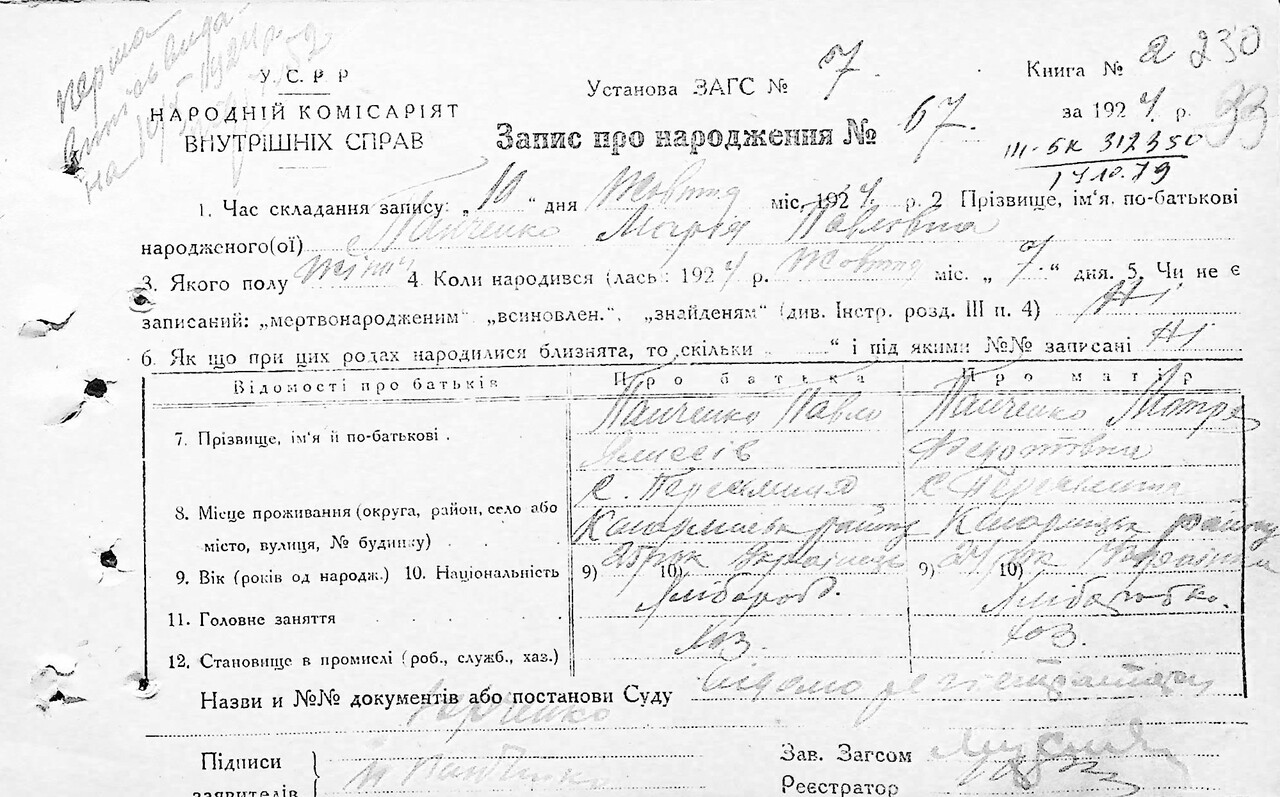 У. С. Р Р
Установа ЗАГС № 7.
Книга № 2 230
НАРОДНІЙ КОМІСАРІЯТ
ВНУТРІШНІХ СПРАВ
за 1924 р. 93
Запис про народження № 67.
III-БК 312350
17 10.79
1. Час складання запису: „10“ дня Жовтня міс. 1924. р. 2 Прізвище, ім'я. по-батькові
народженого(ої) Панченко Марія Павловна
3. Якого полу жіноч 4. Коли народився (лась: 1924 р. Жовтня міс. „7“ дня. 5. Чи не є
записаний: „мертвонародженим“ „всиновлен.“, „знайденям“ (див. Інстр. розд. III п. 4) Ні
6. Як що при цих родах народилися близнята, то скільки “ і під якими №№ записані Ні
Відомості про батьків Про батька Про матір
7. Прізвище, ім'я й по-батькові . Панченко Павло Панченко Мотря
Федотівна
8. Місце проживання (округа, район, село або с. с.
місто, вулиця, № будинку) району району
9. Вік (років од народж.) 10. Національність 9) 25 рок 10) Українець 9) 24 рок 10) Українка
Хлібороб. Хліборобка.
11. Головне заняття
Хоз. Хоз.
12. Становище в промислі (роб., служб., хаз.)
Назви и №№ документів або постанови Суду
Підписи Зав. Загсом
заявителів Панченко Реєстратор